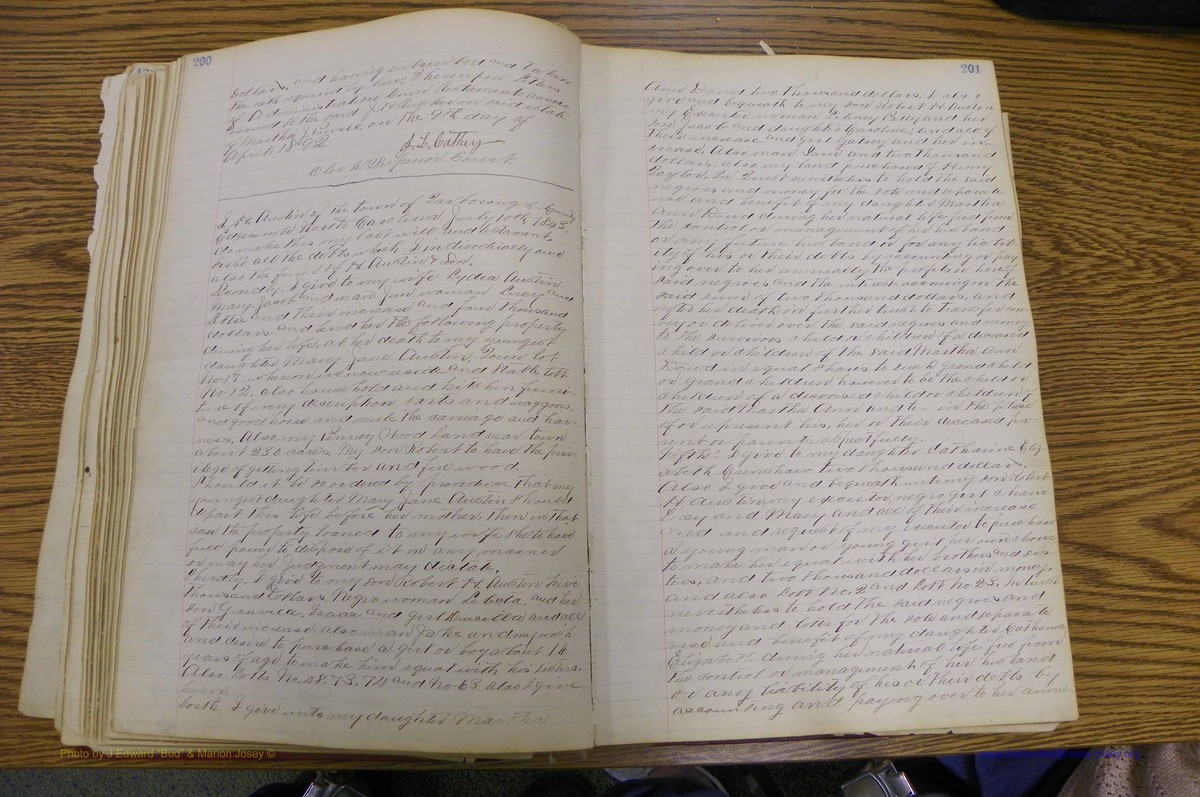 200
Dollars, and having subscribed and taken
the oath required of law, Therefore Letters
of Administration Cum Testamento annexo
issued to the said on said estate
of Martha on the 9th day of
April 1892
J. L. Cathey
Clerk Superior Court
I H. Austin of the town of Tarborough County
Edgecombe North Carolina July 10th 1843.
do make this my last will and testament
first all the debts which I individually owe
also the firm of H Austin & Son.
Secondly. I give to my wife Lydia Austin
Mary Jacob and man Jim woman Lucy and
and their increase and four thousand
dollars. and lend her the following property
during her life, at her death to my youngest
daughter Mary Jane Austin, Town lot
No 17 whereon I now reside and stable lott
No 12. also household and kitchen furni-
ture of every description carts and waggons,
and good horse and mule the carriage and har-
ness, Also my Piney Wood land near town
about 230 acres, my son Robert to have the priv-
ilege of getting timber and fire wood.
Should it be so ordered by providence that my
youngest daughter Mary Jane Austin should
depart this life before her mother, then in that
case the property loaned to my wife she to have
full power to dispose of it in any manner
or way her judgment may dictate.
Thirdly. I give to my son Robert H. Austin five
thousand dollars. Negro woman and her
son Granville, Isaac and girl and all
of their increase. also man Jake and my wish
and desire to purchase a girl or boy about 16
years of age to make him equal with his sisters.
Also Lotts No. 48, 73, 74 and No 63 also I give
him
I give unto my daughter Martha
201
Ann Dowd two thousand dollars, I also
give and bequeath to my son Robert H Austin
my Executor woman and her
son Jacob and daughter Caroline; and all of
their increase and girl and her in-
crease, Also man Sam and two thousand
dollars, also my land purchased of Henry
In trust nevertheless to hold the said
negroes and money for the sole and separate
use and benefit of my daughter Martha
Ann Dowd during her natural life free from
the control or management of her husband
or any future husband or for any liabil-
ity of his or their debts by accounting or pay-
ing over to her annually the profits or hire of
said negroes and the interest accruing on the
said sum of two thousand dollars, and
after her death in further trust to transfer con-
vey or deliver over the said negroes and money
to the survivors child or children of a deceased
child or children of the said Martha Ann
Dowd in equal shares to such grand child
or grand children however to be the child or
children of a deceased child or children of
the said Martha Ann and to in the place
of or represent his, her or their deceased pa-
rent or parents respectfully.
I give to my daughter Catharine Eliz-
abeth Grimshaw two thousand dollars,
Also I give and bequeath unto my son Robert
H Austin, my executor, negro girl
Lucy and Mary and all of their increase
and request of my executor to purchase
a young man or young girl her own choice
to make her equal with her brothers and sis-
ters, and two thousand dollars in money,
and also Lott No. 2 and Lott No 23, In trust
nevertheless to hold the said negroes and
money and lotts for the sole and separate
use and benefit of my daughter Catharine
Elizabeth during her natural life free from
the control or management of her husband
or any liability of his or their debts by
accounting and paying over to her annu-
Photo by J Edward "Bud" & Marion Josey ©